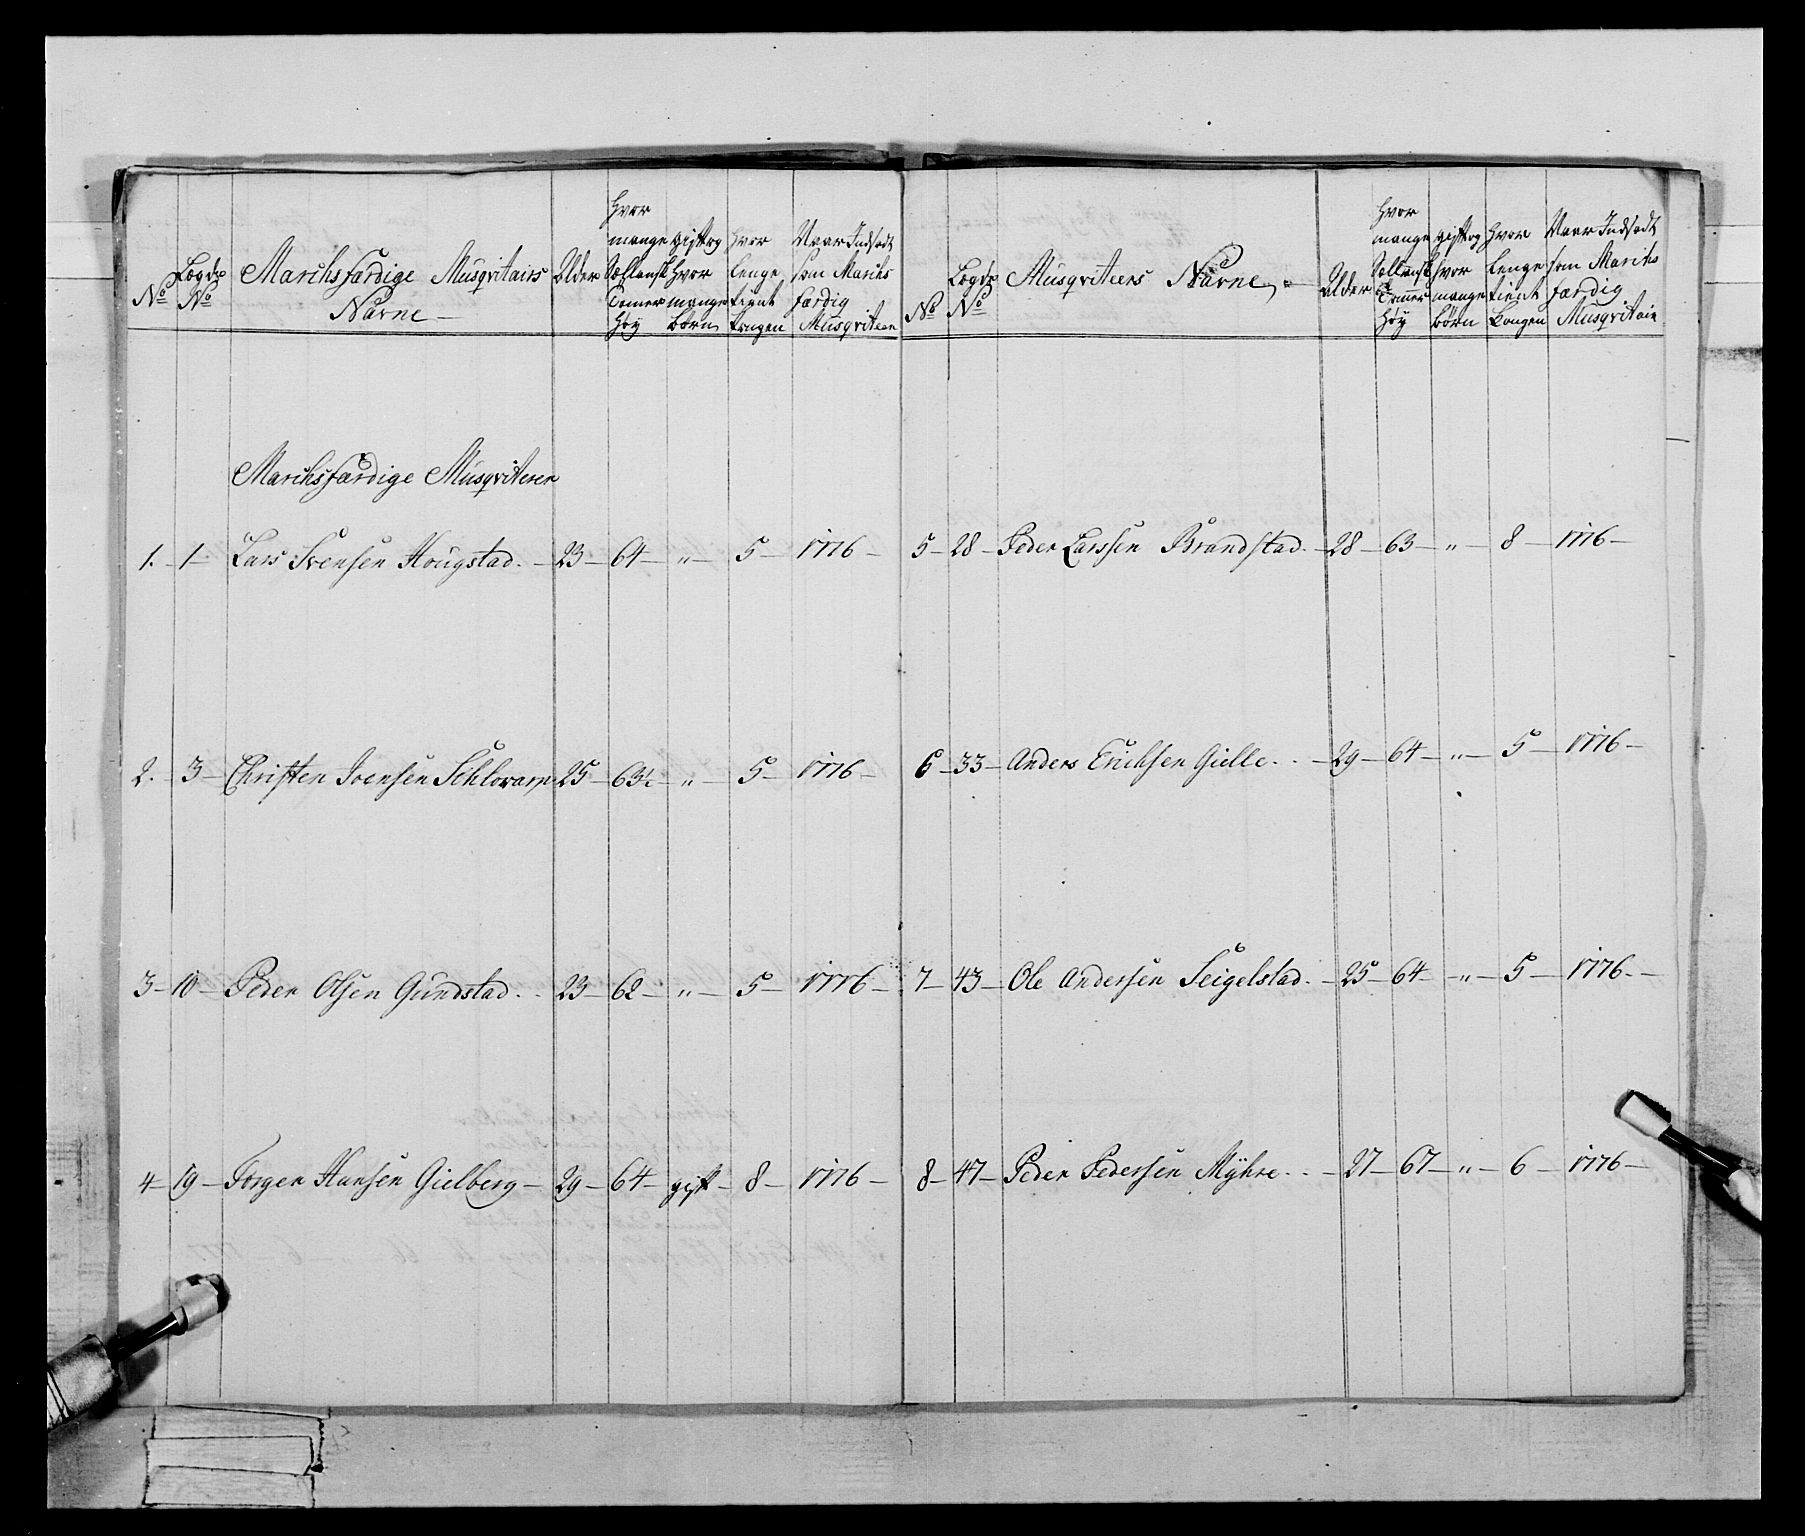 No
Lægds No
Marchsfærdige Musqvitairs Nafne
Alder
Hvor mange Sællensk Tomer Høy
gift og Hvor mange Børn
Hvor lenge tient Kongen
Naar Indsadt som Marchsfærdig Musqviteer
Marchsfærdige Musqviterer
1. 1 Lars Svensen Hougstad. 23 64 „ 5 1776
2. 3 Christen Svensen 25 63½ „ 5 1776
3 10 Peder Olsen Gundstad. 23 62 „ 5 1776
4 19 Jørgen Hansen Gielberg 29 64 gift 8 1776
No
Lægds No
Musqviteers Nafne
Alder
Hvor mange Sællensk Tommer Høy
gift og Hvor mange Børn
Hvor lenge tient Kongen
Naar Indsadt som Marchsfærdig Musqvitair
5 28 Peder Larssen Brandstad. 28 63 „ 8 1776
6 33 Anders Erichsen Gielle. 29 64 „ 5 1776
7 43 Ole Andersen Seigelstad. 25 64 „ 5 1776
8 47 Peder Pedersen Myhre. 27 67 „ 6 1776